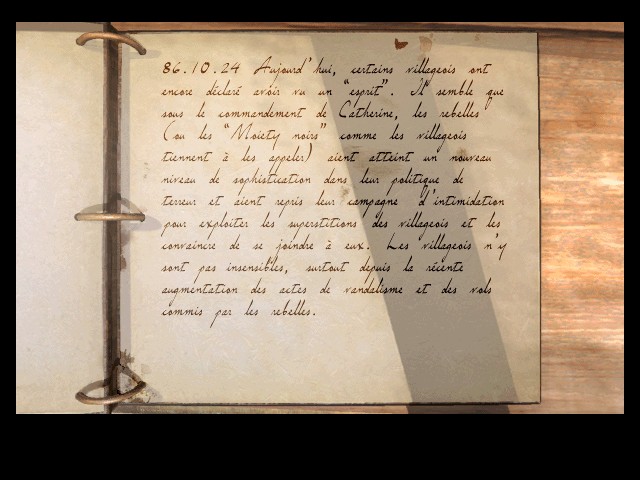 86.10.24 Aujourd'hui, certains villageois ont
encore déclaré avoir vu un "esprit". Il semble que
sous le commandement de Catherine, les rebelles
(ou les "Moiety noirs" comme les villageois
tiennent à les appeler) aient atteint un nouveau
niveau de sophistication dans leur politique de
terreur et aient repris leur campagne d'intimidation
pour exploiter les superstitions des villageois et les
convaincre de se joindre à eux. Les villageois n'y
sont pas insensibles, surtout depuis la récente
augmentation des actes de vandalisme et des vols
commis par les rebelles.